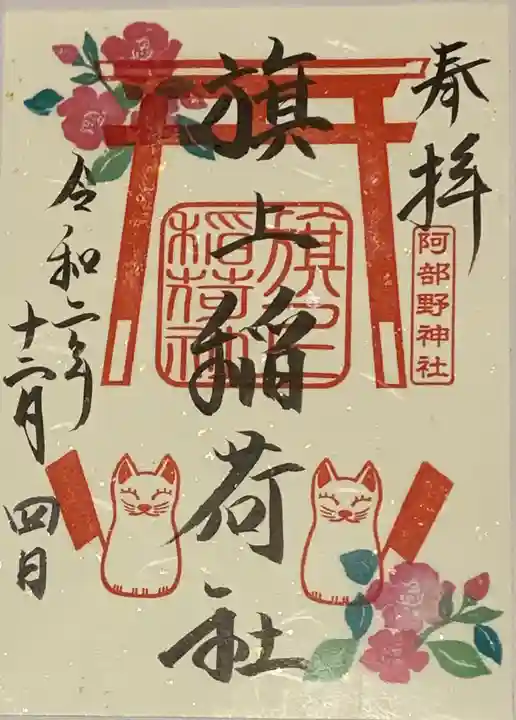 奉拝
阿部野神社
旗上稲荷社
旗上
稲荷社
令和二年
十二月
四日